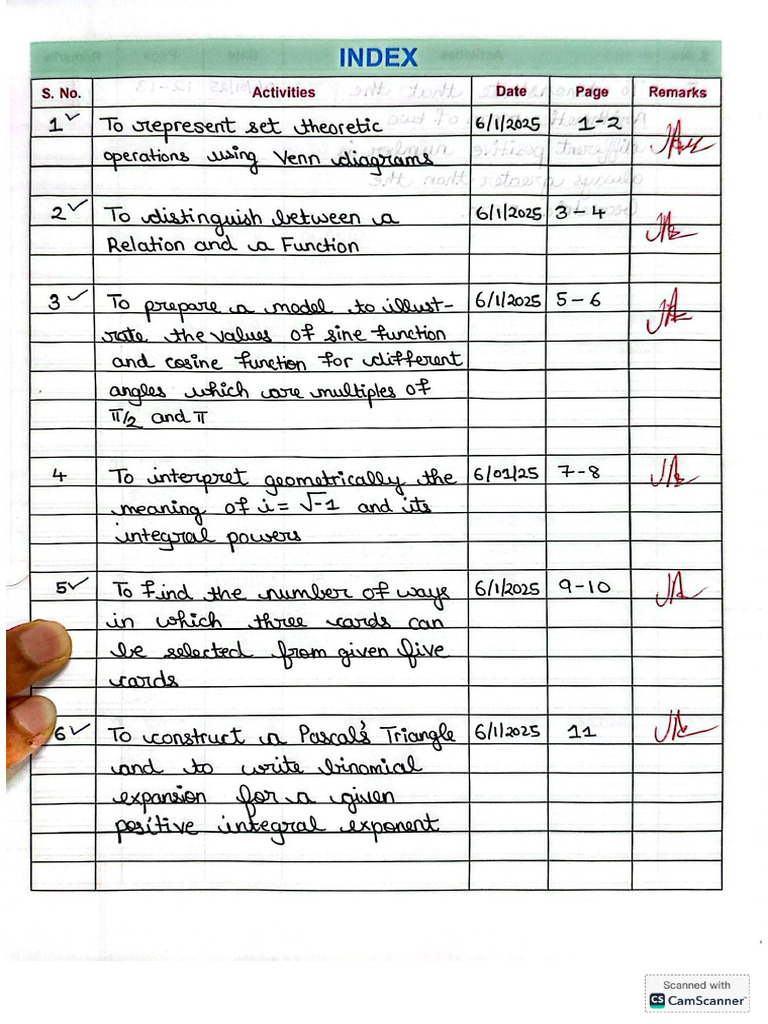 INDEX
S. No. Activities Date Page Remarks
1 ✓ To represent set theoretic 6/1/2025 1-2
operations using Venn diagrams
2 ✓ To distinguish between a 6/1/2025 3-4
Relation and a Function
3 ✓ To prepare a model to illust- 6/1/2025 5-6
rate the values of sine function
and cosine function for different
angles which are multiples of
π/2 and π
4 To interpret geometrically the 6/01/25 7-8
meaning of i = √-1 and its
integral powers
5 ✓ To find the number of ways 6/1/2025 9-10
in which three cards can
be selected from given five
cards
6 ✓ To construct a Pascal's Triangle 6/1/2025 11
and to write binomial
expansion for a given
positive integral exponent
Scanned with
CS CamScanner